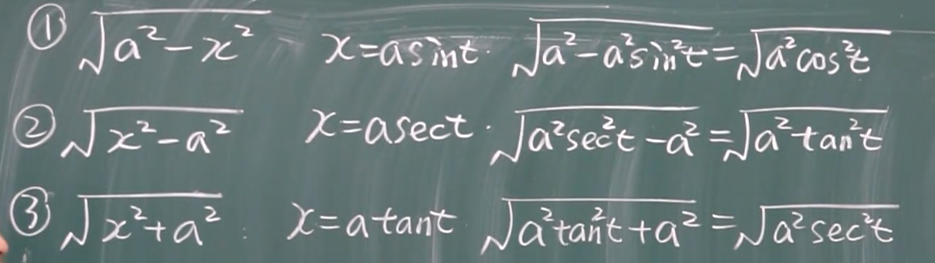 ① √(a²-x²) x=asint. √(a²-a²sin²t)=√(a²cos²t)
② √(x²-a²) x=asect. √(a²sec²t-a²)=√(a²tan²t)
③ √(x²+a²) : x=atant √(a²tan²t+a²)=√(a²sec²t)